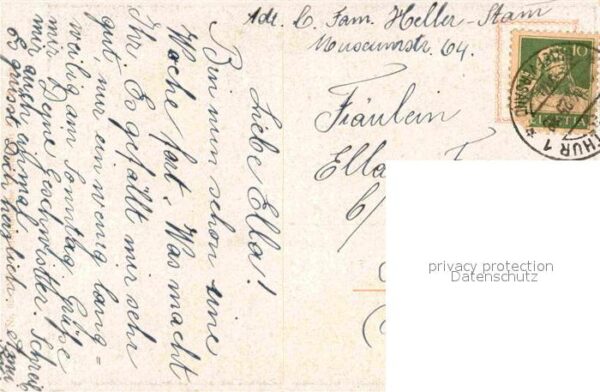 Adr. b. Fam. Heller-Stam
Museumstr. 64.
10
HELVETIA
CHUR 1
Fräulein
Ella
6/
privacy protection
Datenschutz
Liebe Ella!
Bin nun schon eine
Woche fort. Was macht
Ihr. Es gefällt mir sehr
gut, nur ein wenig lang-
weilig am Sonntag. Grüße
mir Deine Geschwister. Schreib
mir auch einmal.
Es grüsst Dich herzlich